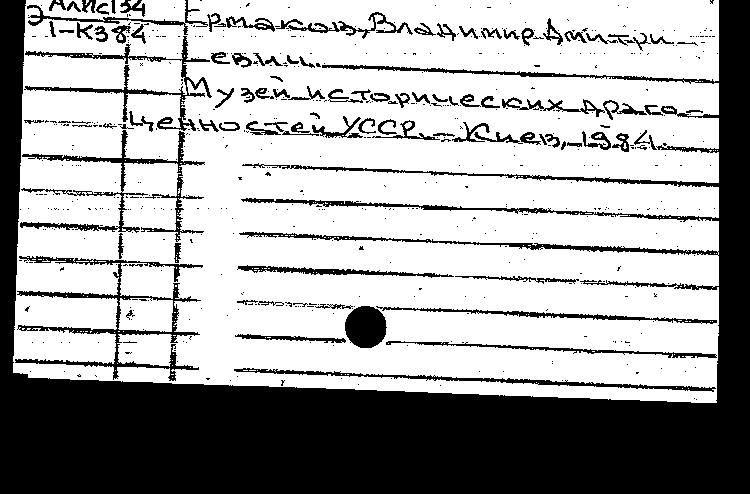 Э АлИс134
1-К384
Ермаков, Владимир Дмитри-
евич.
Музей исторических драго-
ценностей УССР. – Киев, 1984.